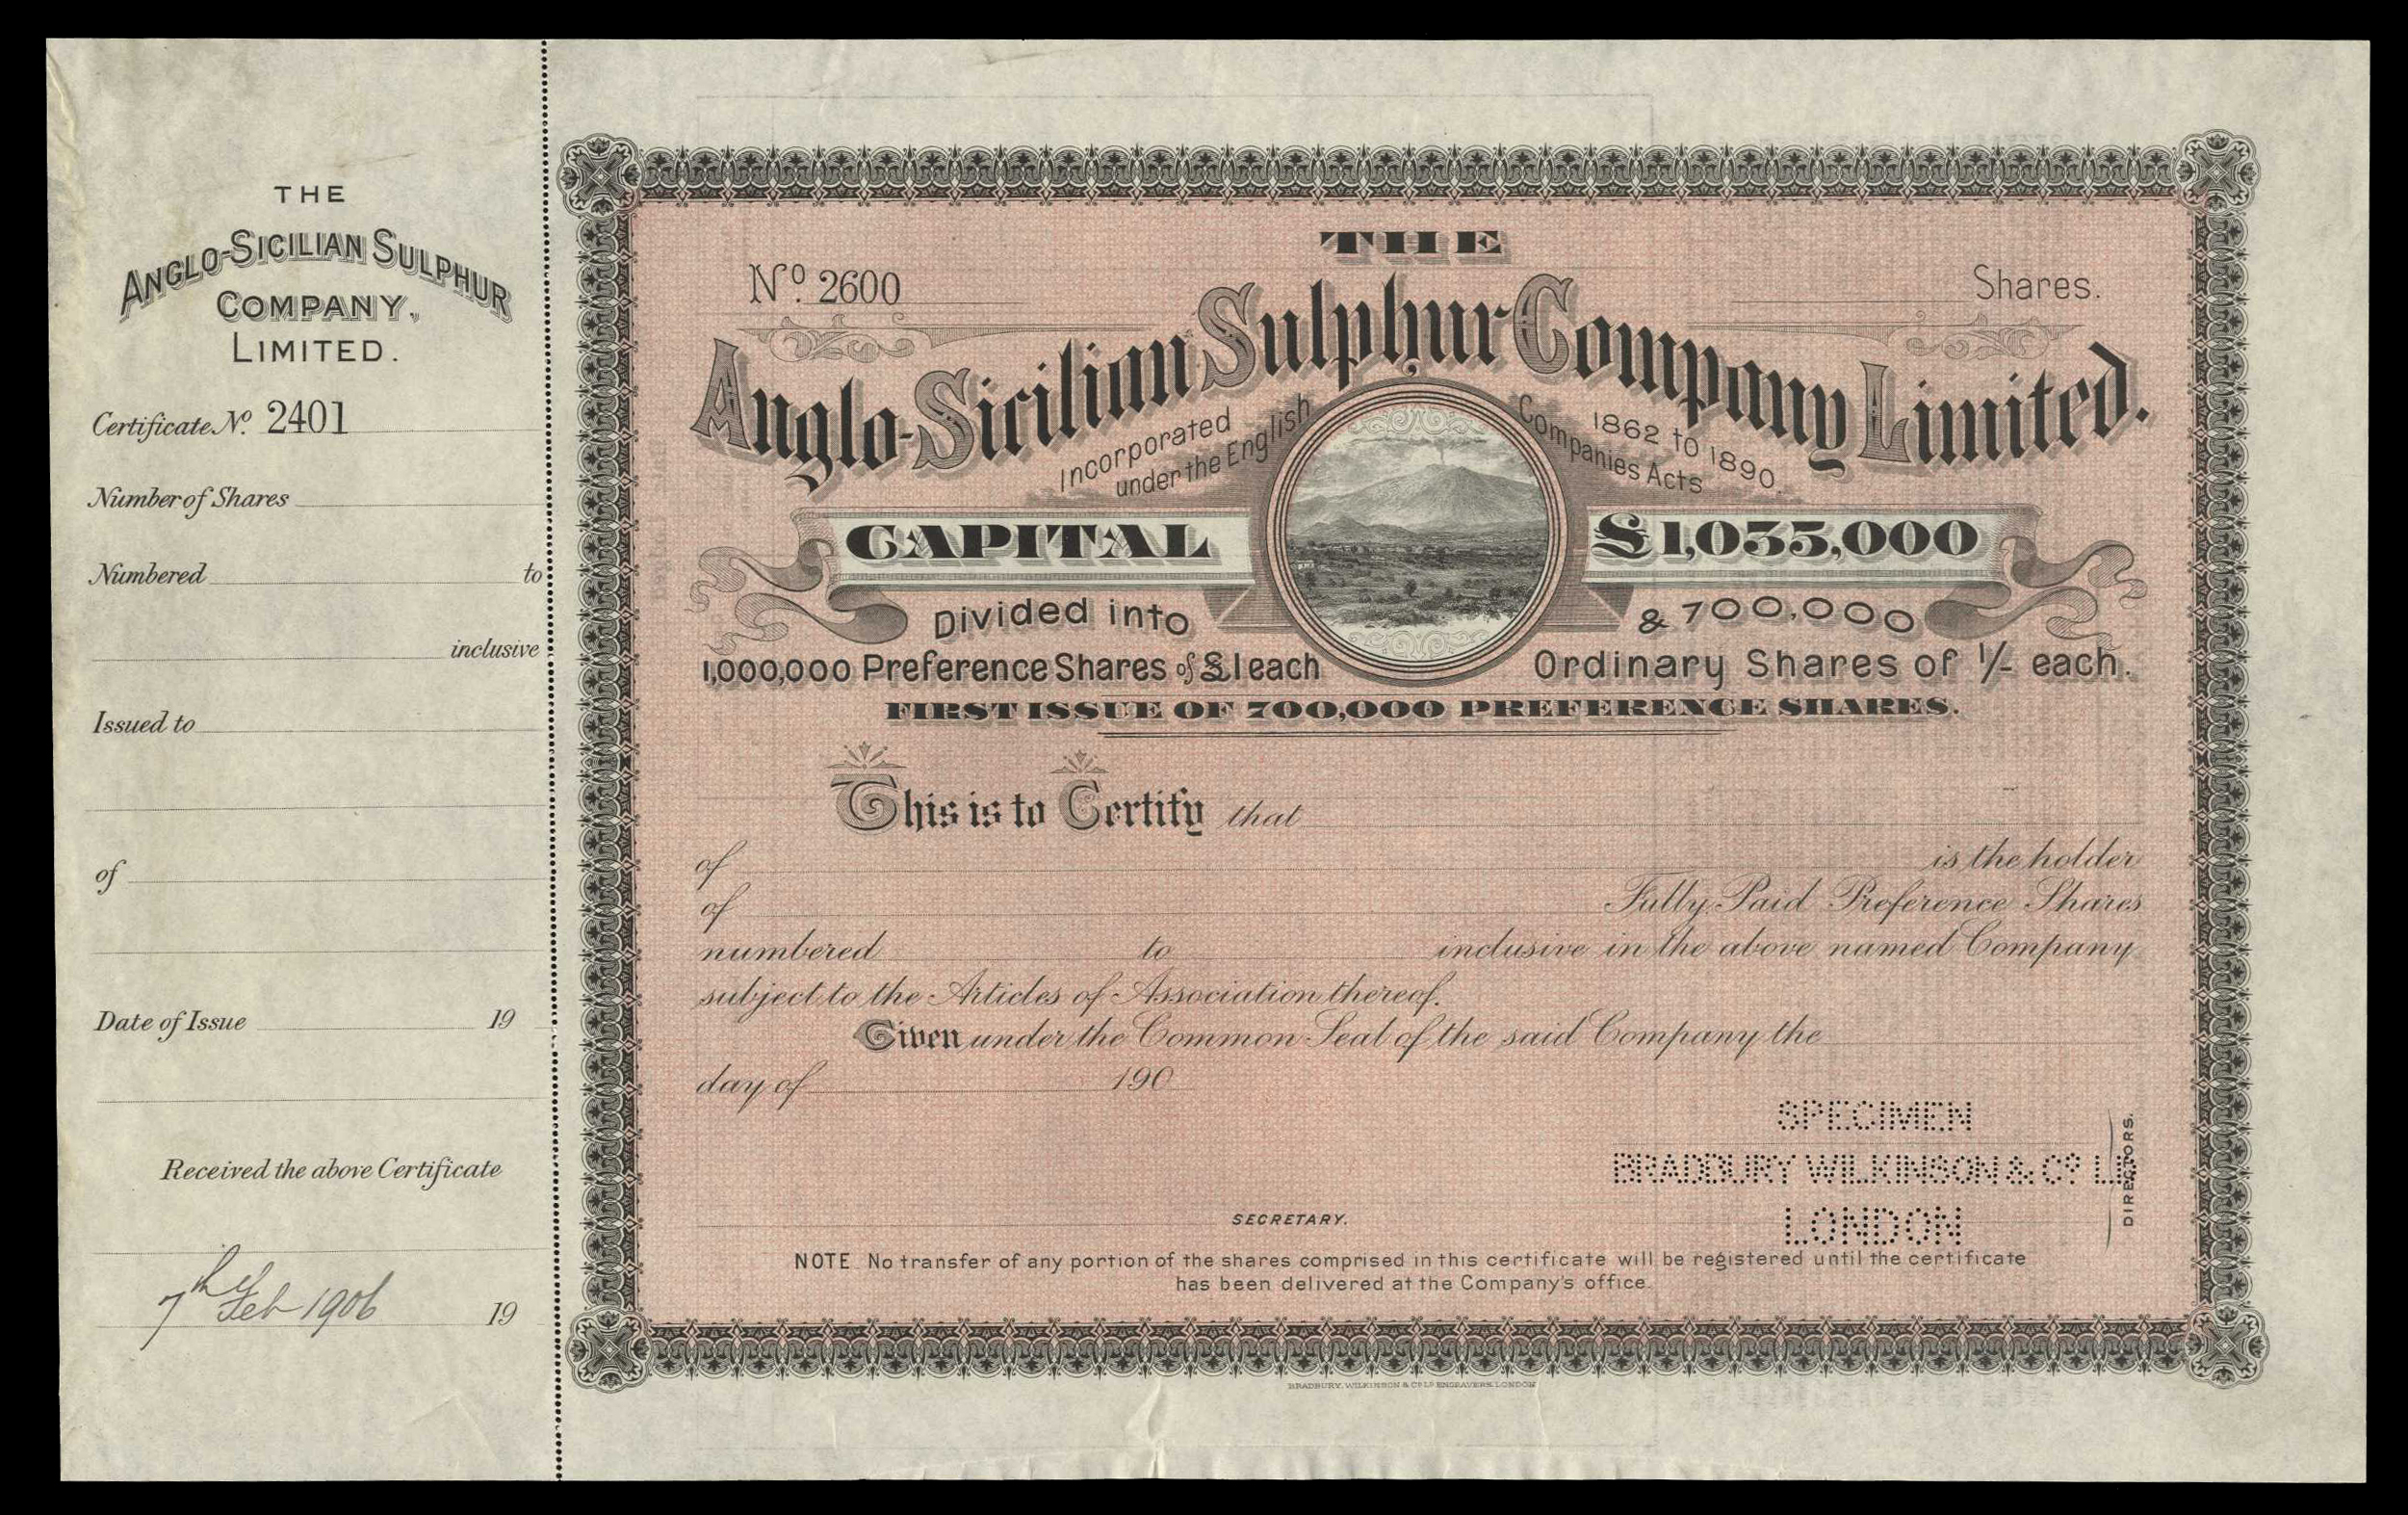 THE
ANGLO-SICILIAN SULPHUR
COMPANY,
LIMITED.
Certificate No. 2401
Number of Shares
Numbered to
inclusive
Issued to
of
Date of Issue 19
Received the above Certificate
7th Feb 1906 19
THE
No. 2600 Shares.
Anglo-Sicilian Sulphur Company Limited.
Incorporated
under the English
Companies Acts
1862 to 1890.
CAPITAL £1,035,000
Divided into & 700,000
1,000,000 Preference Shares of £1 each Ordinary Shares of 1/- each.
FIRST ISSUE OF 700,000 PREFERENCE SHARES.
This is to Certify that
of is the holder
of Fully Paid Preference Shares
numbered to inclusive in the above named Company
subject to the Articles of Association thereof.
Given under the Common Seal of the said Company the
day of 190
SPECIMEN
BRADBURY WILKINSON & Co. LD.
LONDON
DIRECTORS.
SECRETARY.
NOTE No transfer of any portion of the shares comprised in this certificate will be registered until the certificate
has been delivered at the Company's office.
BRADBURY, WILKINSON & Co. LD. ENGRAVERS, LONDON